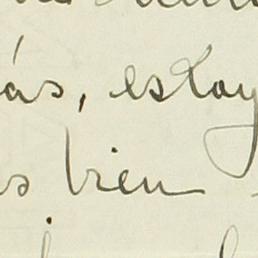 ás, estoy
s bien